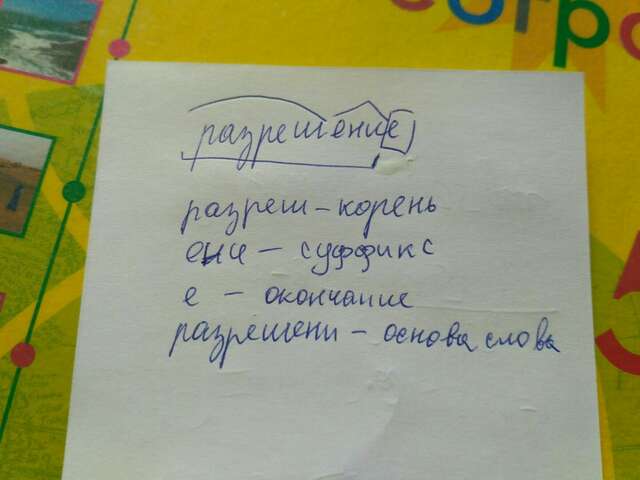 разрешение
разреш - корень
ени - суффикс
е - окончание
разрешени - основа слова